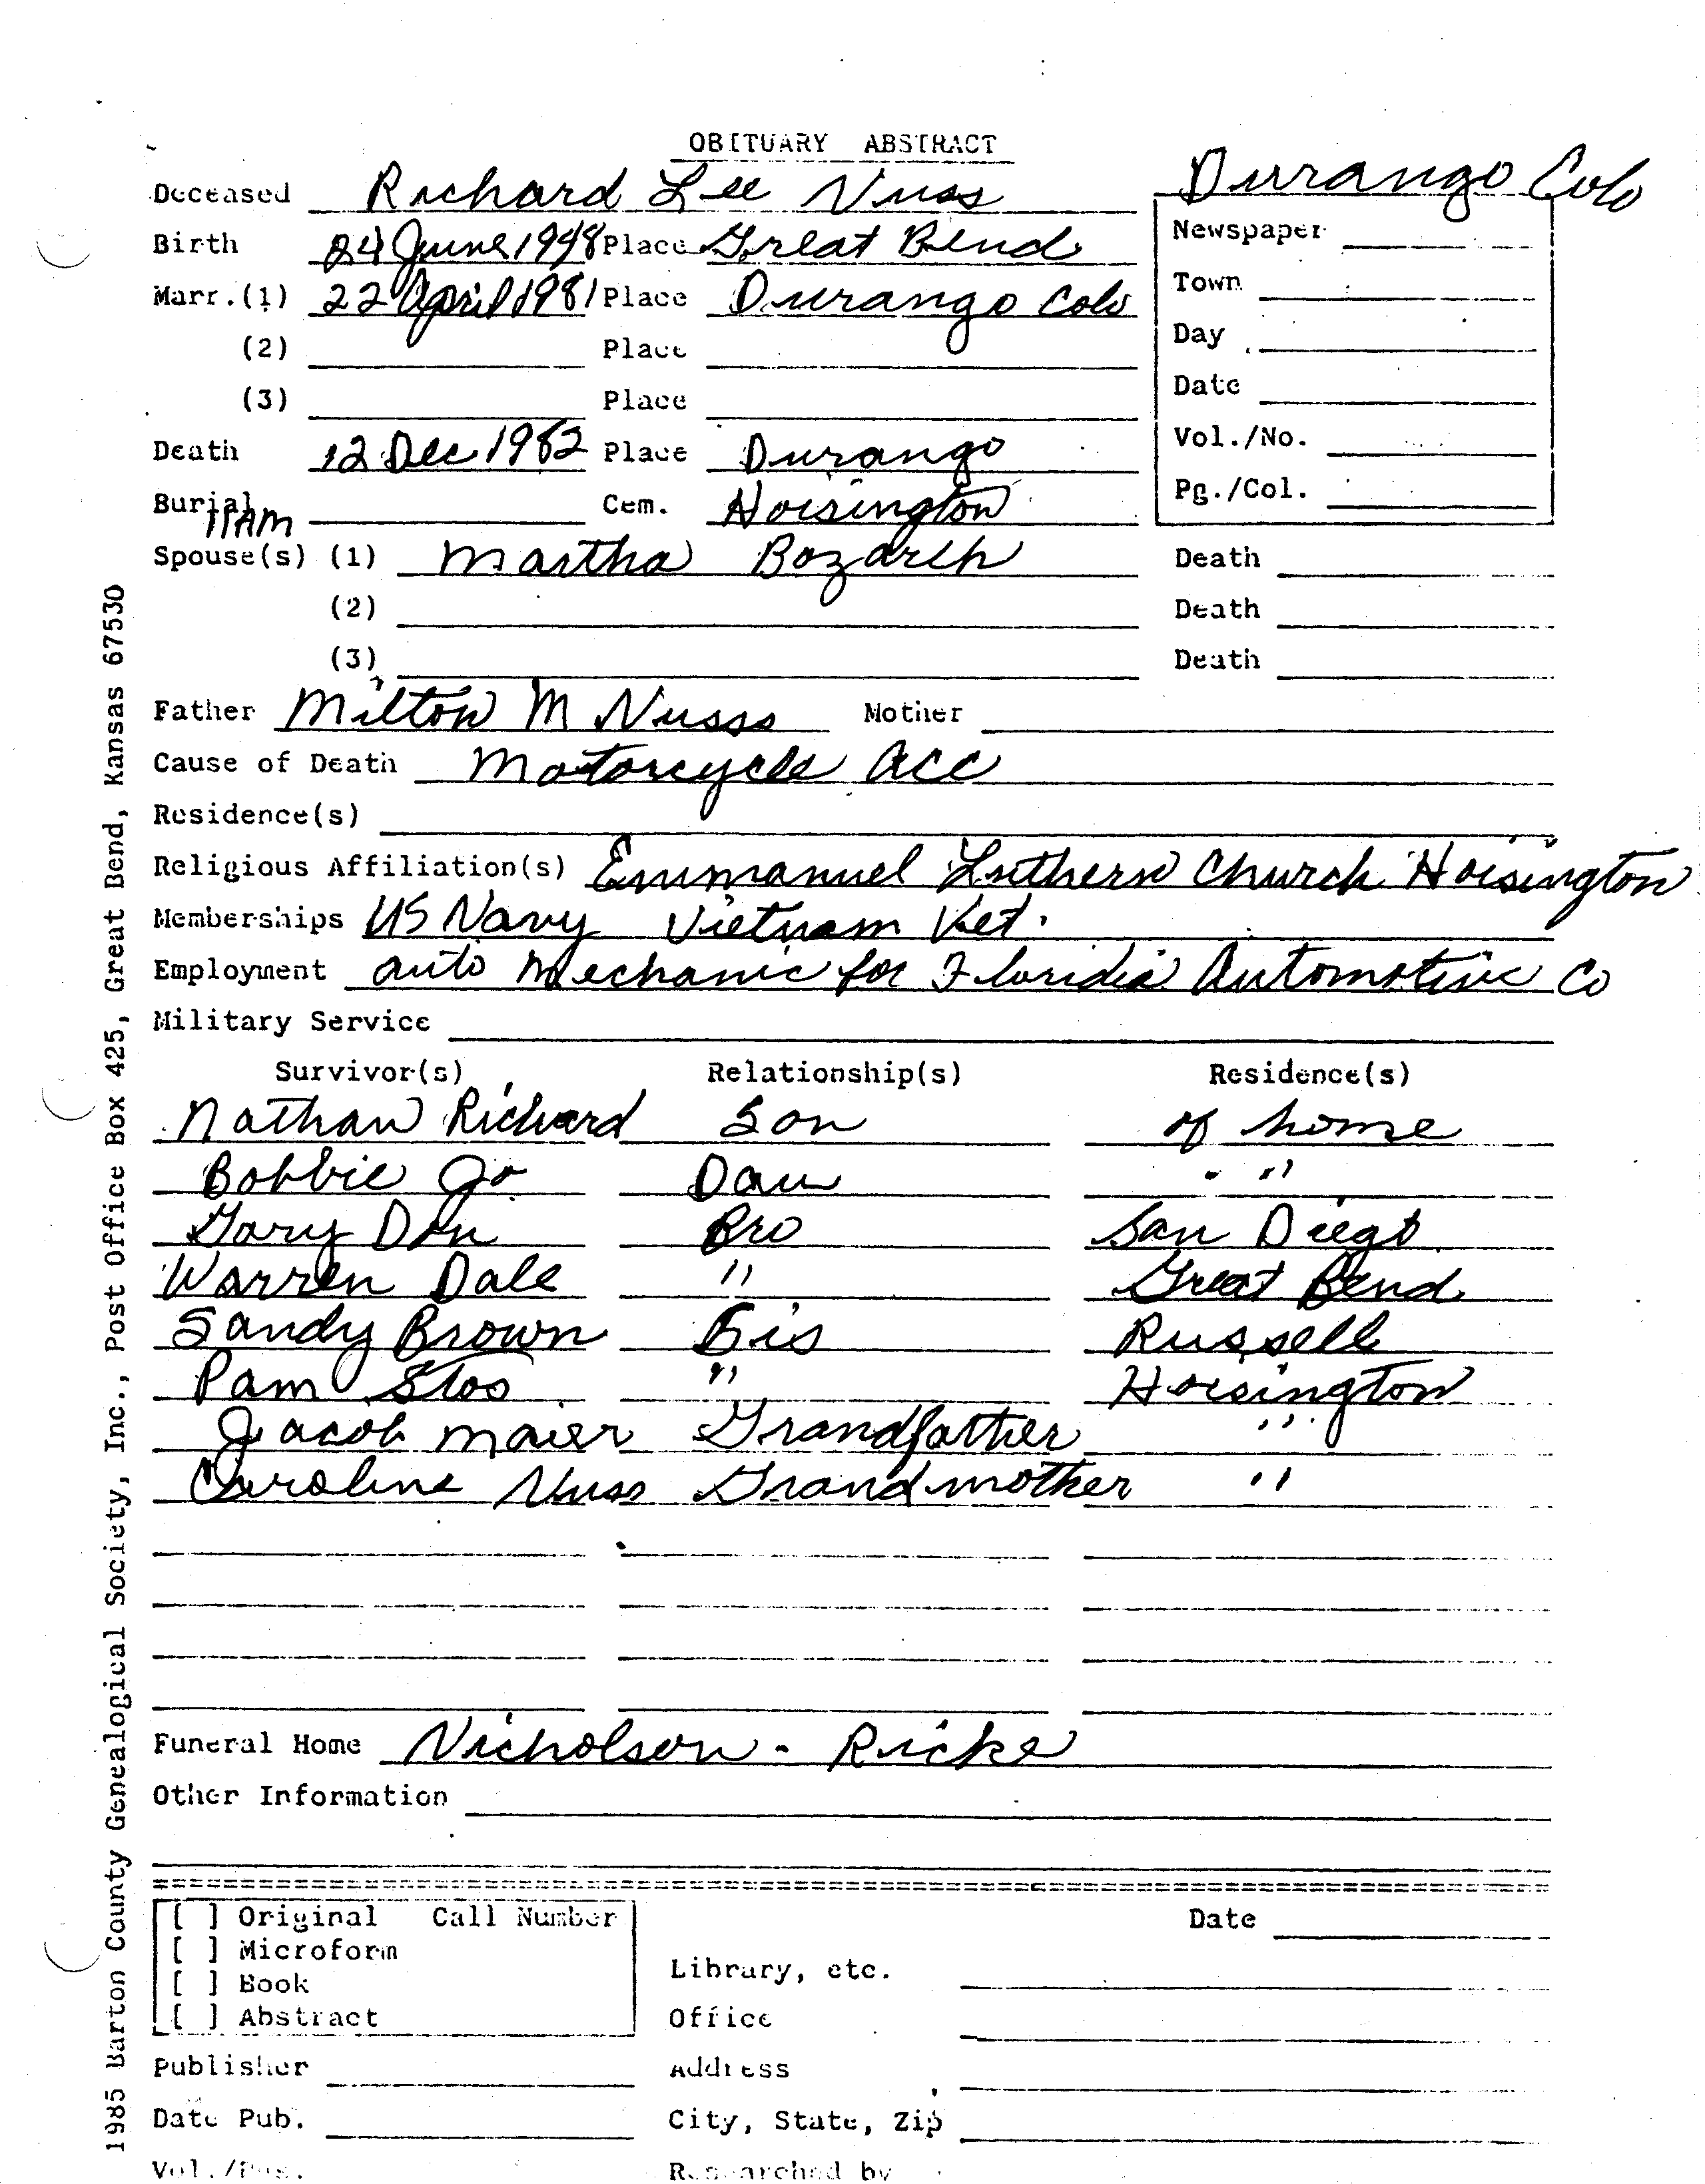 OBITUARY ABSTRACT
Durango Colo
Deceased Richard Lee Nuss
Birth 24 June 1948 Place Great Bend
Marr.(1) 22 April 1981 Place Durango Colo
(2) Place
(3) Place
Death 12 Dec 1982 Place Durango
Burial 11AM Cem. Hoisington
Newspaper
Town
Day
Date
Vol./No.
Pg./Col.
Spouse(s) (1) Martha Bozarth Death
(2) Death
(3) Death
Father Milton M Nusss Mother
Cause of Death Motorcycle acc
Residence(s)
Religious Affiliation(s) Emmanuel Luthern Church Hoisington
Memberships US Navy Vietnam Vet.
Employment auto Mechanic for Floridia Automotive Co
Military Service
Survivor(s) Relationship(s) Residence(s)
Nathan Richard Son of home
Bobbie Jo Dau "
Gary Don Bro San Diego
Warren Dale " Great Bend
Sandy Brown Sis Russell
Pam Stos " Hoisington
Jacob Maier Grandfather "
Caroline Nuss Grandmother "
Funeral Home Nicholson - Ricke
Other Information
[ ] Original Call Number
[ ] Microform
[ ] Book
[ ] Abstract
Date
Library, etc.
Office
Publisher Address
Date Pub. City, State, Zip
Vol./Pgs. Researched by
1985 Barton County Genealogical Society, Inc., Post Office Box 425, Great Bend, Kansas 67530